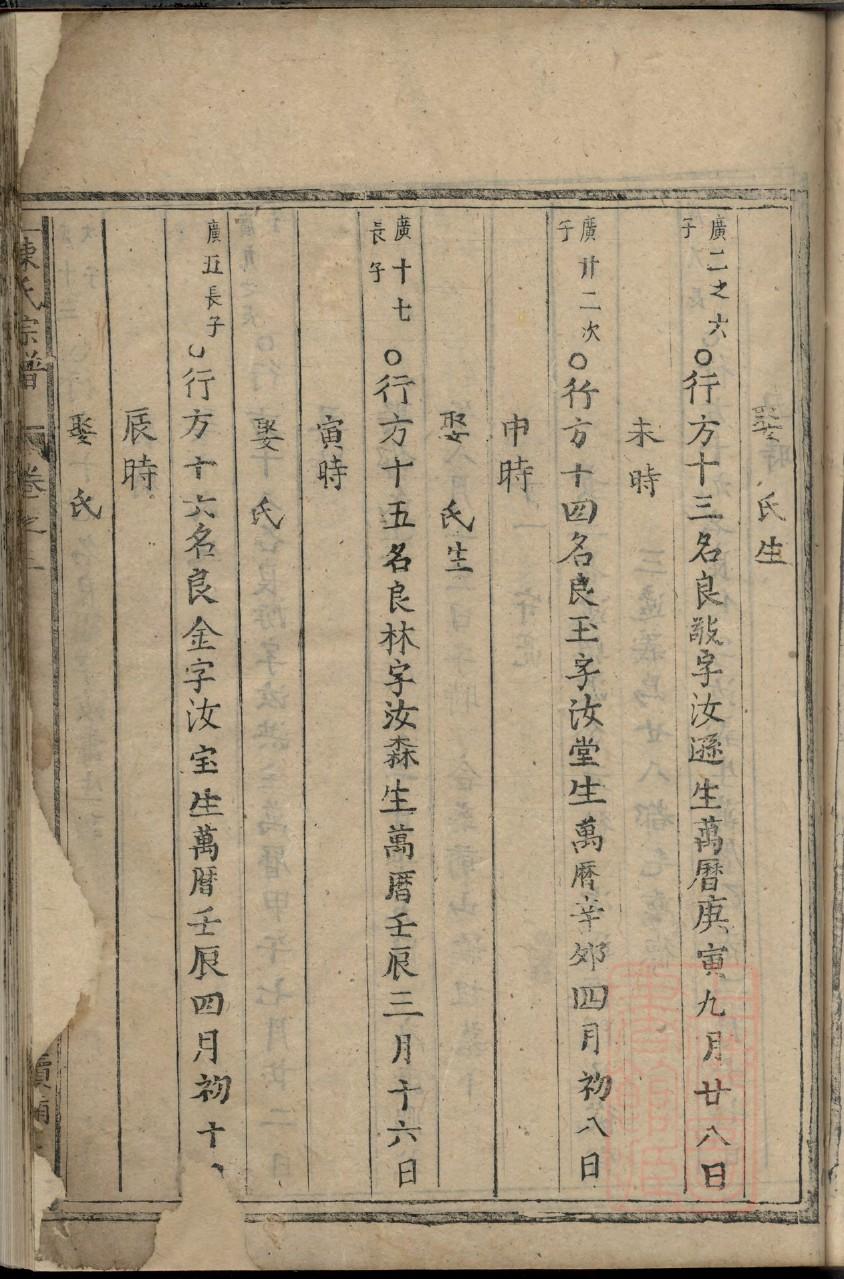 娶 氏生
廣二之六子○行方十三名良敬字汝遜生萬曆庚寅九月廿八日
未時
廣廿二次子○行方十四名良玉字汝堂生萬曆辛卯四月初八日
申時
娶 氏生
廣十七長子○行方十五名良林字汝森生萬曆壬辰三月十六日
寅時
娶 氏
廣五長子○行方十六名良金字汝宝生萬曆壬辰四月初十
辰時
娶 氏
陳氏宗譜 卷之